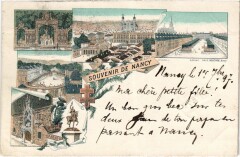 SOUVENIR DE NANCY
Nancy 1er 7bre 97
ma chère petite fille!
Un bon gros bec sur tes
deux joues de ton papa en
passant à Nancy.